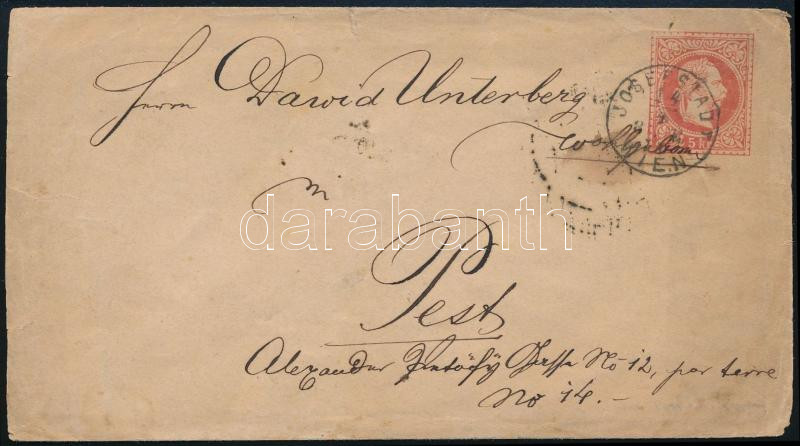 Herrn Dawid Unterberg
Wohlgebom
in
Pest
Alexander Petöfy Gasse No 12, par terre
No 14.-
JOSEFSTADT
WIEN
5 kr
darabanth